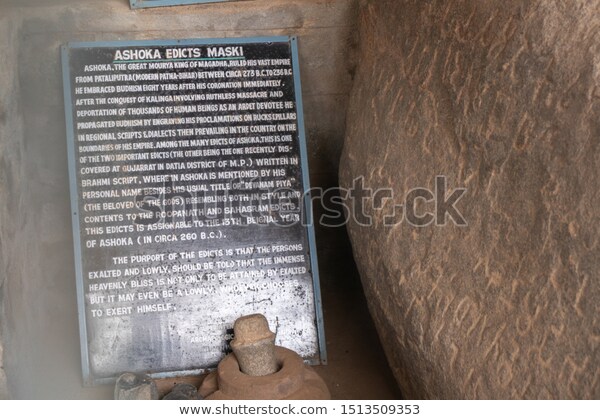 ASHOKA EDICTS MASKI
ASHOKA, THE GREAT MOURYA KING OF MAGADHA, RULED HIS VAST EMPIRE
FROM PATALIPUTRA (MODERN PATNA-BIHAR) BETWEEN CIRCA 273 B.C. TO 236 B.C
HE EMBRACED BUDHISM EIGHT YEARS AFTER HIS CORONATION IMMEDIATELY,
AFTER THE CONQUEST OF KALINGA INVOLVING RUTHLESS MASSACRE AND
DEPORTATION OF THOUSANDS OF HUMAN BEINGS AS AN ARDET DEVOTEE HE
PROPAGATED BUDHISM BY ENGRAVING HIS PROCLAMATIONS ON RUCKS & PILLARS
IN REGIONAL SCRIPTS & DIALECTS THEN PREVAILING IN THE COUNTRY ON THE
BOUNDARIES OF HIS EMPIRE, AMONG THE MANY EDICTS OF ASHOKA, THIS IS ONE
OF THE TWO IMPORTANT EDICTS (THE OTHER BEING THE ONE RECENTLY DIS-
COVERED AT GUJARRAT IN DATIA DISTRICT OF M.P.) WRITTEN IN
BRAHMI SCRIPT, WHERE IN ASHOKA IS MENTIONED BY HIS
PERSONAL NAME BESIDES HIS USUAL TITLE OF "DEVANAM PIYA"
(THE BELOVED OF THE GODS) RESEMBLING BOTH IN STYLE AND
CONTENTS TO THE ROOPANATH AND SAHASRAM EDICTS
THIS EDICTS IS ASSIGNABLE TO THE 13TH. REIGNAL YEAR
OF ASHOKA ( IN CIRCA 260 B.C.).
THE PURPORT OF THE EDICTS IS THAT THE PERSONS
EXALTED AND LOWLY, SHOULD BE TOLD THAT THE IMMENSE
HEAVENLY BLISS IS NOT ONLY TO BE ATTAINED BY EXALTED
BUT IT MAY EVEN BE A LOWLY,
TO EXERT HIMSELF.
shutterstock
IMAGE ID: 1513509353
www.shutterstock.com